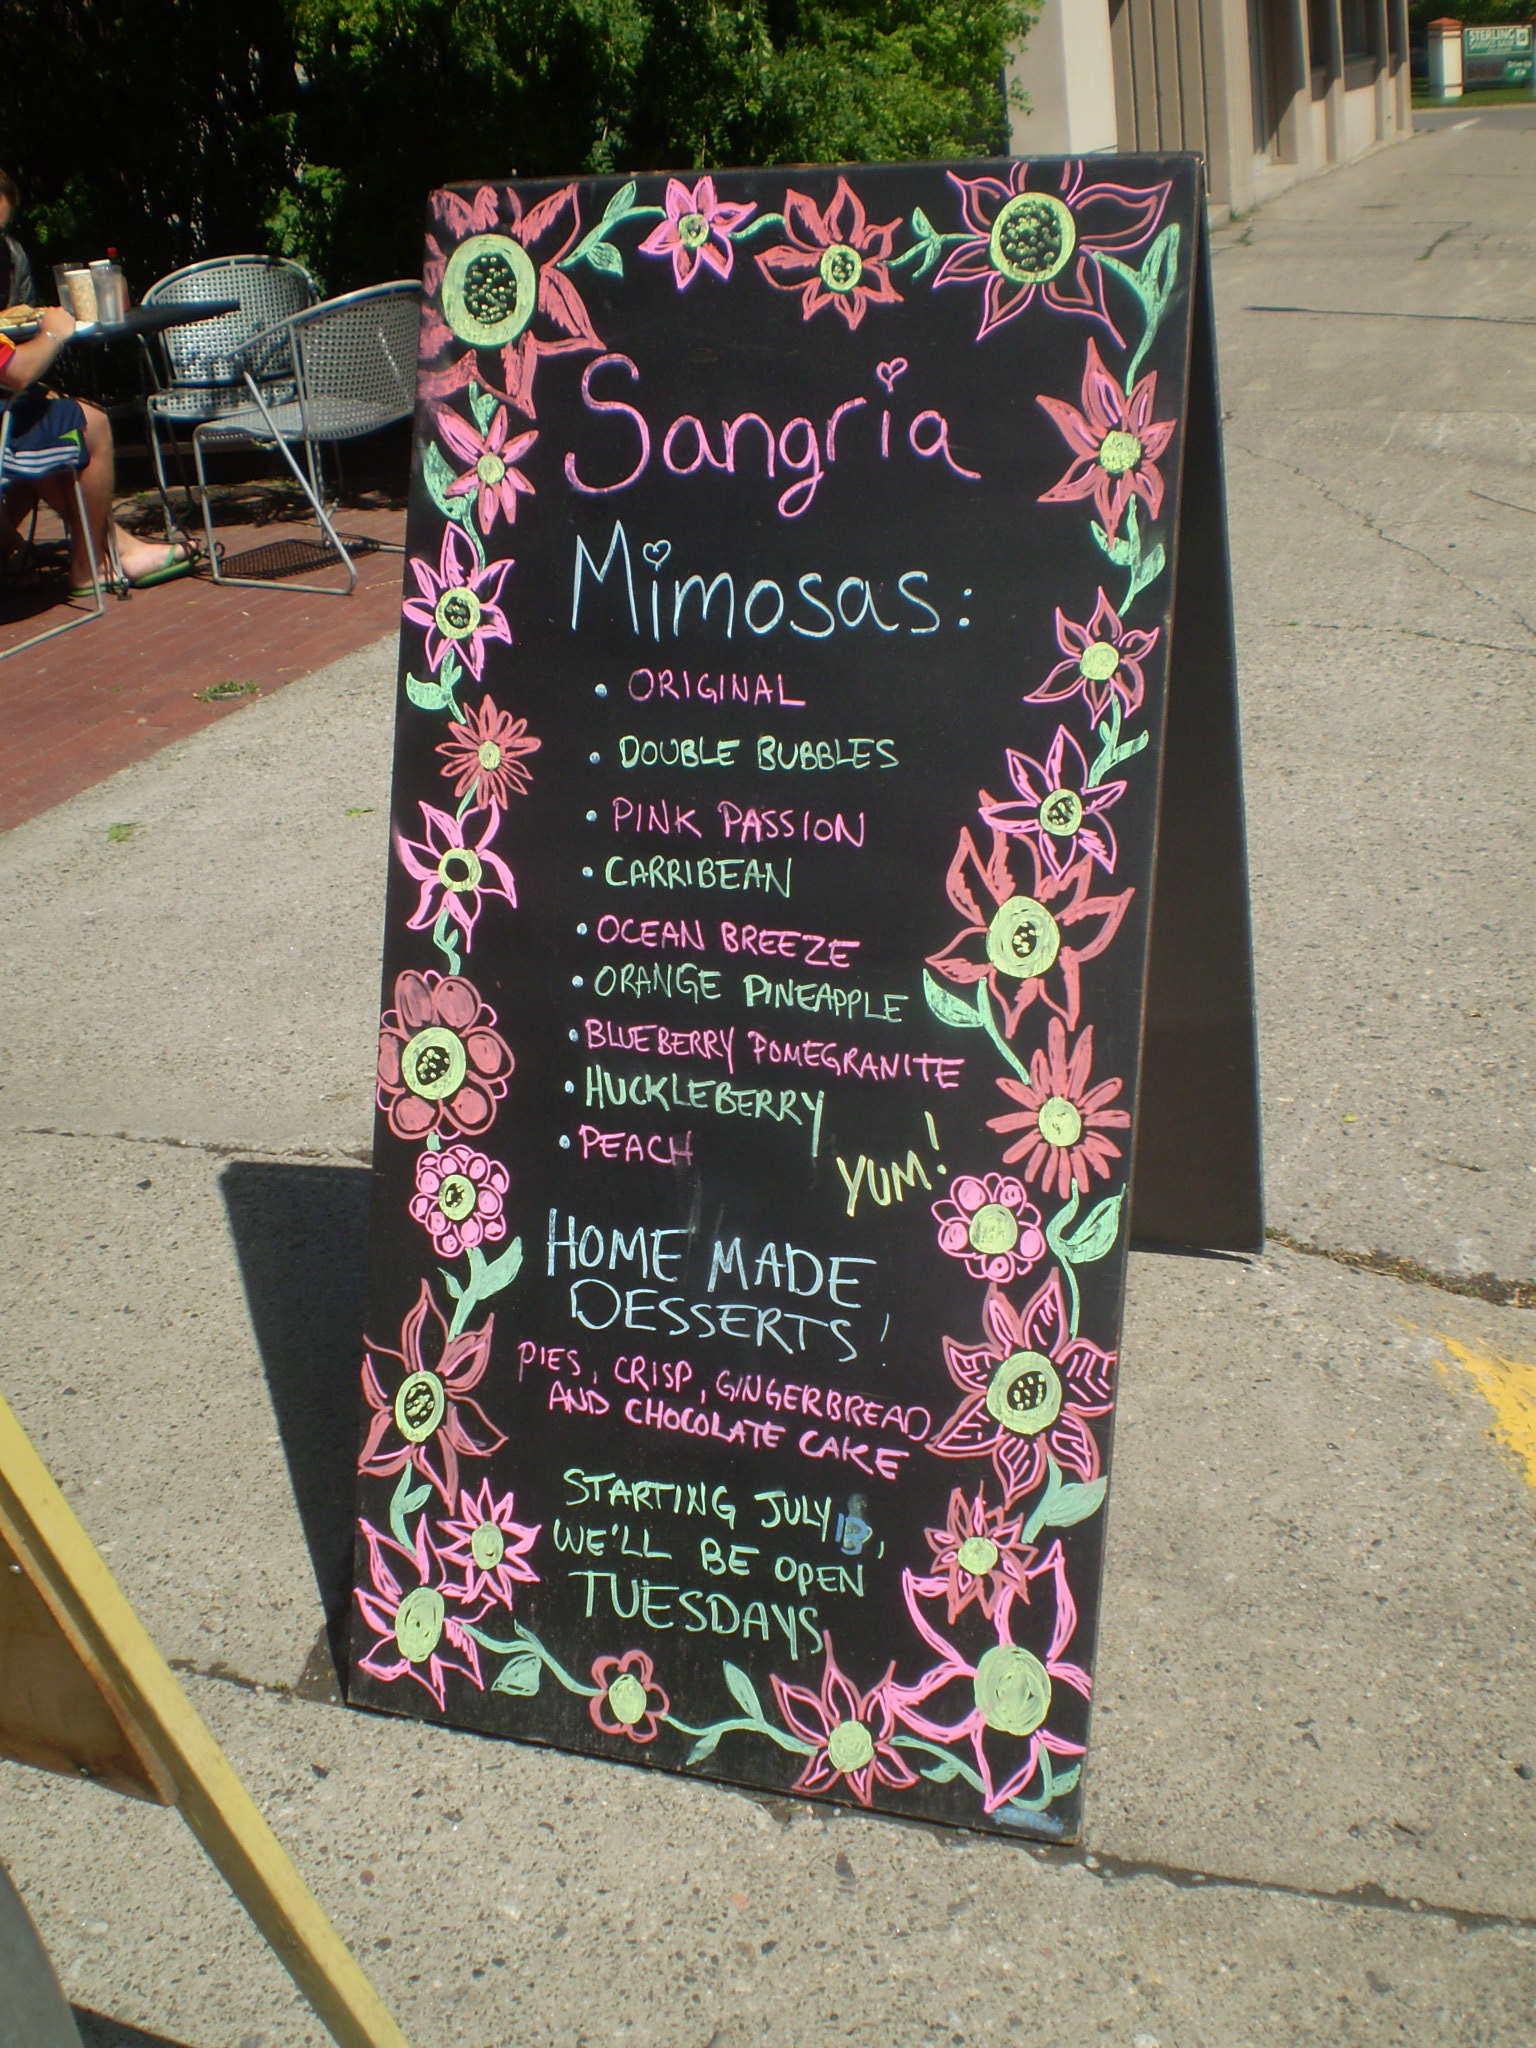 Sangria
Mimosas:
• ORIGINAL
• DOUBLE BUBBLES
• PINK PASSION
• CARRIBEAN
• OCEAN BREEZE
• ORANGE PINEAPPLE
• BLUEBERRY POMEGRANITE
• HUCKLEBERRY
• PEACH
YUM!
HOME MADE
DESSERTS!
PIES, CRISP, GINGERBREAD
AND CHOCOLATE CAKE
STARTING JULY 13,
WE'LL BE OPEN
TUESDAYS
STERLING
SAVINGS BANK
Drive-Up
ATM